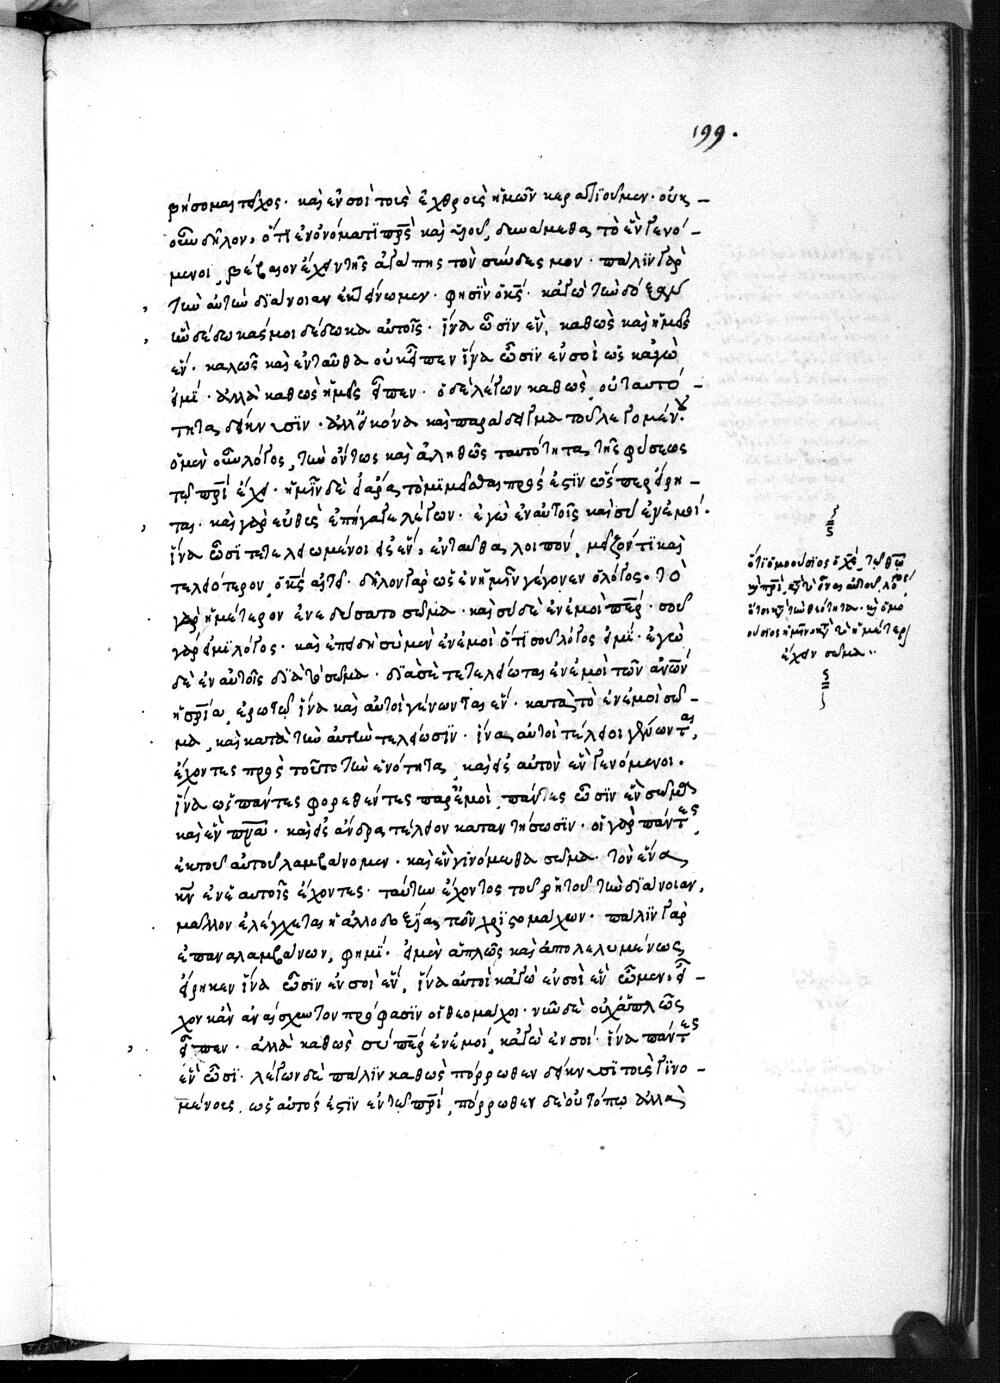 199.
βήσομαι τεῖχος· καὶ ἐν σοὶ τοὺς ἐχθροὺς ἡμῶν κερατιοῦμεν· οὐκ
οῦν δῆλον, ὅτι ἐν ὀνόματι πρς καὶ υἱοῦ, δυνάμεθα τὸ ἓν γενό
μενοι, βέβαιον ἔχειν τῆς ἀγάπης τὸν σύνδεσμον· πάλιν γὰρ
τὴν αὐτὴν διάνοιαν ἐκτείνων· φησὶν ὁ κς· κἀγὼ τὴν δόξαν
ἣν δέδωκάς μοι δέδωκα αὐτοῖς· ἵνα ὦσιν ἓν, καθὼς καὶ ἡμεῖς
ἕν· καλῶς καὶ ἐνταῦθα οὐκ εἶπεν ἵνα ὦσιν ἐν σοὶ ὡς κἀγὼ
εἰμί· ἀλλὰ καθὼς ἡμεῖς εἶπεν· ὁ δὲ λέγων καθὼς, οὐ ταυτό
τητα δείκνυσιν· ἀλλ' εἰκόνα καὶ παράδειγμα τοῦ λεγομένου·
ὁ μὲν οὖν λόγος, τὴν ὄντως καὶ ἀληθῶς ταυτότητα τῆς φύσεως
τῷ πρὶ ἔχει· ἡμῖν δὲ τὸ μιμεῖσθαι πρός ἐστιν ὥσπερ εἴρη
ται· καὶ γὰρ εὐθὺς ἐπήγαγε λέγων· ἐγὼ ἐν αὐτοῖς καὶ σὺ ἐν ἐμοί·
ἵνα ὦσι τετελειωμένοι εἰς ἕν, ἐνταῦθα λοιπὸν, μεῖζόν τι καὶ
τελειότερον, ὁ κς αἰτεῖ· δῆλον γὰρ ὡς ἐν ἡμῖν γέγονεν ὁ λόγος· τὸ
γὰρ ἡμέτερον ἐνεδύσατο σῶμα· καὶ σὺ δὲ ἐν ἐμοὶ περ· σοῦ
γὰρ εἰμὶ λόγος· καὶ ἐπειδὴ σὺ μὲν ἐν ἐμοὶ ὅτι σοῦ λόγος εἰμί· ἐγὼ
δὲ ἐν αὐτοῖς διὰ τὸ σῶμα· διὰ σὲ τετελείωται ἐν ἐμοὶ τῶν ἀνων
ἡ σρία, ἐρωτῶ ἵνα καὶ αὐτοὶ γένωνται ἕν· κατὰ τὸ ἐν ἐμοὶ σῶ
μα, καὶ κατὰ τὴν αὐτοῦ τελείωσιν· ἵνα αὐτοὶ τέλειοι γένωνται,
ἔχοντες πρὸς τοῦτο τὴν ἑνότητα, καὶ εἰς αὐτὸν ἓν γενόμενοι·
ἵνα ὡς πάντες φορεθέντες παρ' ἐμοὶ, πάντες ὦσιν ἓν σῶμα
καὶ ἓν πνα· καὶ εἰς ἄνδρα τέλειον καταντήσωσιν· οἱ γὰρ πάντες
ἐκ τοῦ αὐτοῦ λαμβάνομεν· καὶ ἓν γινόμεθα σῶμα· τὸν ἕνα
κν ἐν ἑαυτοῖς ἔχοντες· ταύτην ἔχοντος τοῦ ῥητοῦ τὴν διάνοιαν,
μᾶλλον ἐλέγχεται ἡ ἀλλοδοξία τῶν χριστομάχων· πάλιν γὰρ
ἐπαναλαμβάνων, φημὶ· εἰ μὲν ἁπλῶς καὶ ἀπολελυμένως
εἴρηκεν ἵνα ὦσιν ἐν σοὶ ἓν, ἵνα αὐτοὶ κἀγὼ ἐν σοὶ ἓν ὦμεν· εἶ
χον κἂν ἀναίσχυντον πρόφασιν οἱ θεομάχοι· νῦν δὲ οὐχ ἁπλῶς
εἶπεν· ἀλλὰ καθὼς σύ περ ἐν ἐμοὶ, κἀγὼ ἐν σοί· ἵνα πάντες
ἓν ὦσι· λέγων δὲ πάλιν καθὼς πόρρωθεν δείκνυσι τοὺς γινο
μένους, ὡς αὐτός ἐστιν ἐν τῷ πρὶ, πόρρωθεν δὲ οὐ τόπῳ ἀλλὰ
ὅτι ὁμοούσιος ὁ χς τῷ θῶ
ὅτι κατὰ τὴν θεότητα· καὶ ὁμο
ούσιος ἡμῖν κατὰ τὸ ἡμέτερον
ἔχειν σῶμα··